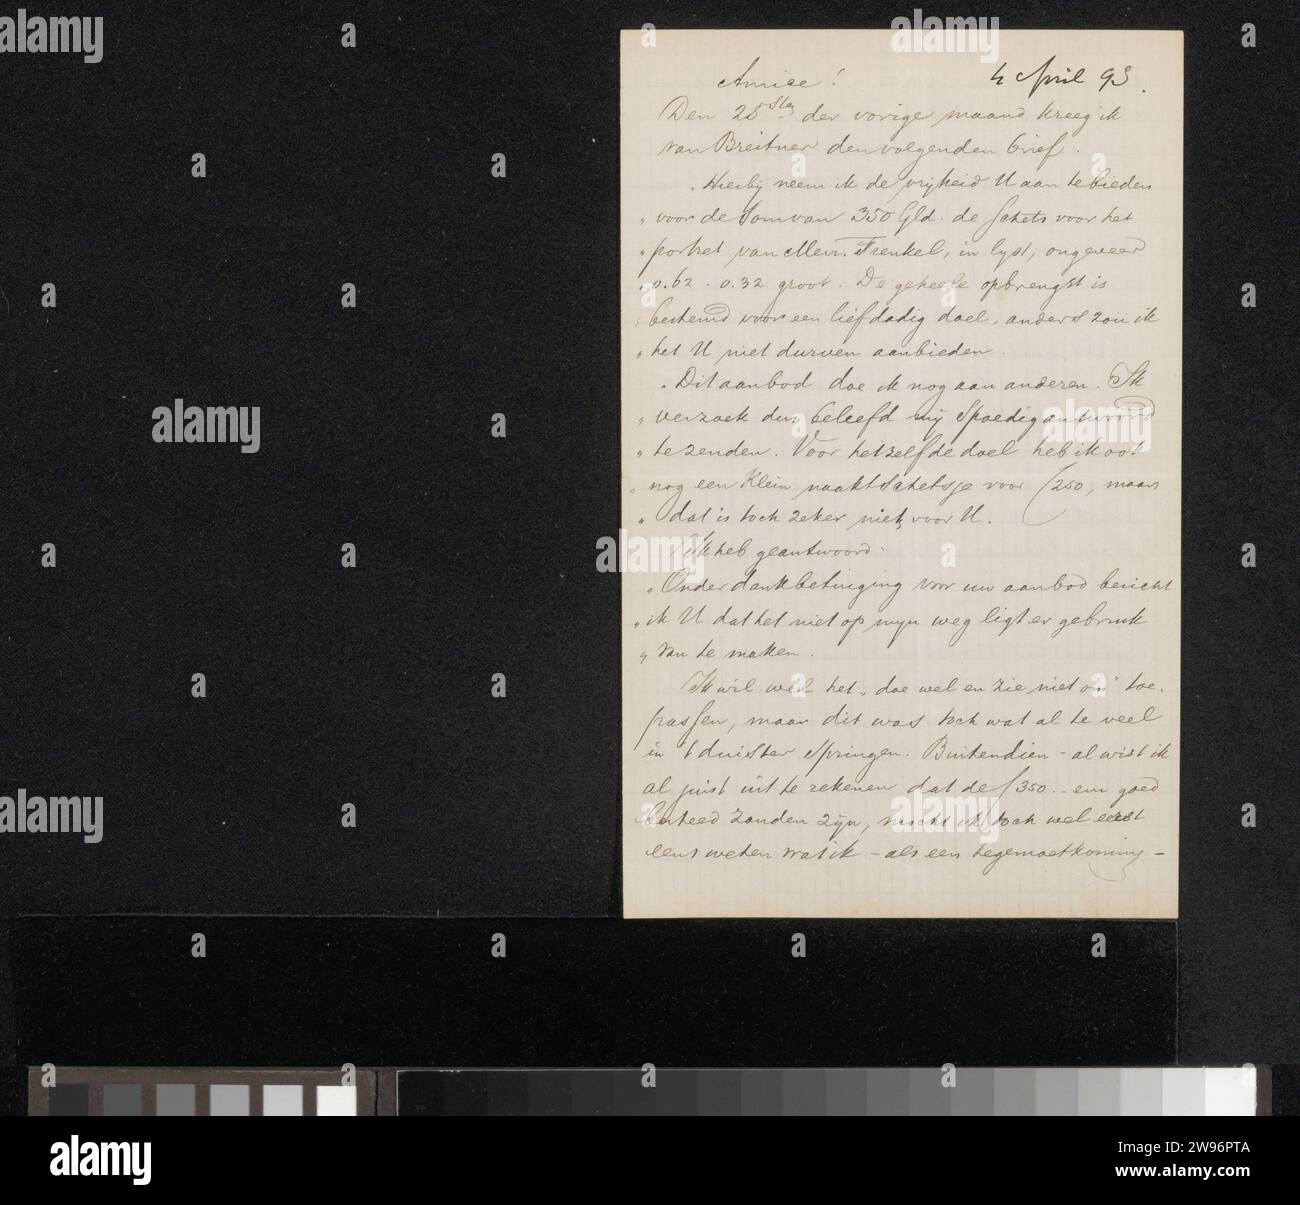 Amice! 4 April 93.
Den 25sten der vorige maand kreeg ik
van Breitner den volgenden brief.
„Hierbij neem ik de vrijheid U aan te bieden
„voor de som van 350 Gld. de schets voor het
„portret van Mevr. Frenkel, in lyst, ongeveer
„0.62 - 0.32 groot. De geheele opbrengst is
„bestemd voor een liefdadig doel, anders zou ik
„het U niet durven aanbieden.
„Dit aanbod doe ik nog aan anderen. Ik
„verzoek dus beleefd mij spoedig antwoord
„te zenden. Voor hetzelfde doel heb ik ook
„nog een klein naaktschetsje voor ƒ250, maar
„dat is toch zeker niets voor U.
Ik heb geantwoord:
„Onder dankbetuiging voor uw aanbod bericht
„ik U dat het niet op mijn weg ligt er gebruik
„van te maken.
Ik wil wel het „doe wel en zie niet om" toe-
passen, maar dit was toch wat al te veel
in 't duister springen. Buitendien - al wist ik
al juist uit te rekenen dat de ƒ350.- een goed
besteed zouden zijn, mocht ik toch wel eerst
eens weten wat ik - als een tegemoetkoming -
alamy
Image ID: 2W96PTA
www.alamy.com